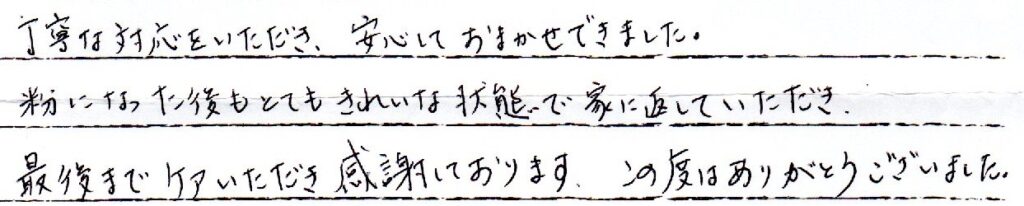 丁寧な対応をいただき、安心しておまかせできました。
粉になった後もとてもきれいな状態で家に返していただき、
最後までケアいただき感謝しております。この度はありがとうございました。